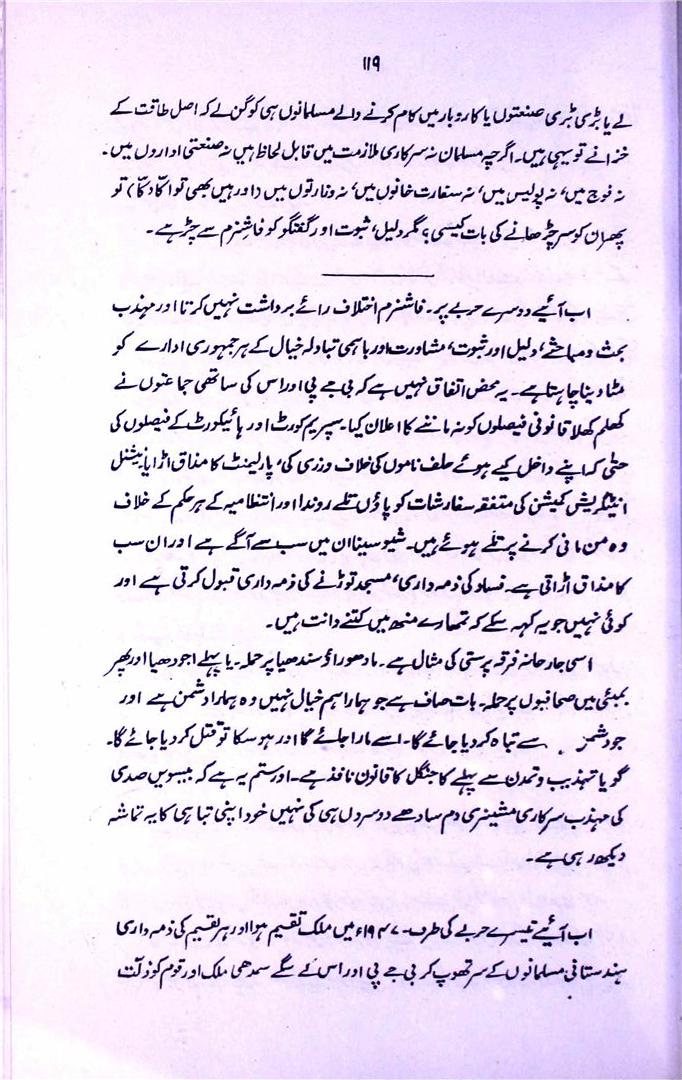 ۱۱۹
لے یا بڑی بڑی صنعتوں یا کاروبار میں کام کرنے والے مسلمانوں ہی کو گن لے کہ اصل طاقت کے
خزانے تو یہی ہیں۔ اگرچہ مسلمان نہ سرکاری ملازمت میں قابل لحاظ ہیں نہ صنعتی اداروں میں۔
نہ فوج میں، نہ پولیس میں، نہ سفارت خانوں میں، نہ وزارتوں میں (اور ہیں بھی تو اکّا دکّا) تو
پھر ان کو سر چڑھانے کی بات کیسی؟ مگر دلیل، ثبوت اور گفتگو کو فاشزم سے چڑ ہے۔
اب آئیے دوسرے حربے پر۔ فاشنرم اختلاف رائے برداشت نہیں کرتا اور مہذب
بحث و مباحثے، دلیل اور ثبوت، مشاورت اور باہمی تبادلہ خیال کے ہر جمہوری ادارے کو
مٹا دینا چاہتا ہے۔ یہ محض اتفاق نہیں ہے کہ بی جے پی اور اس کی ساتھی جماعتوں نے
کھلم کھلا قانونی فیصلوں کو نہ ماننے کا اعلان کیا۔ سپریم کورٹ اور ہائیکورٹ کے فیصلوں کی
حتیٰ کہ اپنے داخل کیے ہوئے حلف ناموں کی خلاف ورزی کی، پارلیمنٹ کا مذاق اڑایا، نیشنل
انٹیگریشن کمیشن کی متفقہ سفارشات کو پاؤں تلے روندا اور انتظامیہ کے ہر حکم کے خلاف
وہ من مانی کرنے پر تُلے ہوئے ہیں۔ شیوسینا ان میں سب سے آگے ہے اور ان سب
کا مذاق اڑاتی ہے۔ فساد کی ذمہ داری، مسجد توڑنے کی ذمہ داری قبول کرتی ہے اور
کوئی نہیں جو یہ کہہ سکے کہ تمھارے منھ میں کتنے دانت ہیں۔
اسی جارحانہ فرقہ پرستی کی مثال ہے۔ مادھوراؤ سندھیا پر حملہ۔ یا پہلے اجودھیا اور پھر
بمبئی میں صحافیوں پر حملہ۔ بات صاف ہے جو ہمارا ہم خیال نہیں وہ ہمارا دشمن ہے اور
جو دشمن سے تباہ کر دیا جائے گا۔ اسے مارا جائے گا اور ہو سکا تو قتل کر دیا جائے گا۔
گویا تہذیب و تمدن سے پہلے کا جنگل کا قانون نافذ ہے۔ اور ستم یہ ہے کہ بیسویں صدی
کی مہذب سرکاری مشینری دم سادھے دوسروں ہی کی نہیں خود اپنی تباہی کا یہ تماشہ
دیکھ رہی ہے۔
اب آئیے تیسرے حربے کی طرف۔ ۱۹۴۷ء میں ملک تقسیم ہوا اور ہر تقسیم کی ذمہ داری
ہندستانی مسلمانوں کے سر تھوپ کر بی جے پی اور اس کے سگے سمدھی ملک اور قوم کو ذلت